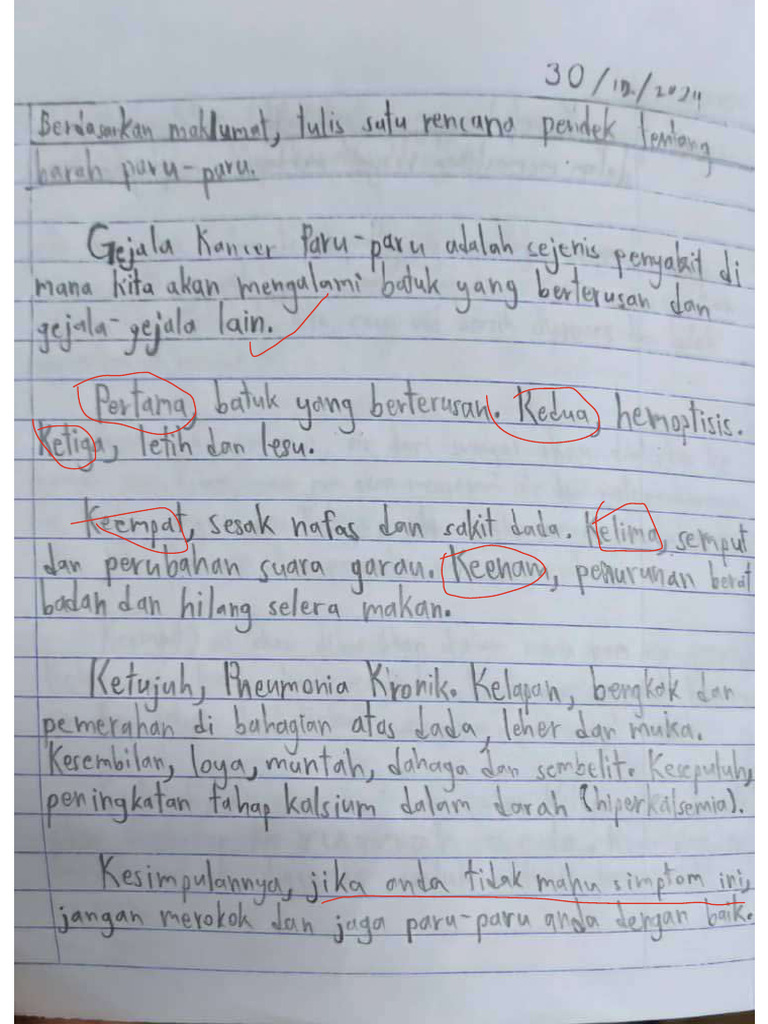 30/12/2024
Berdasarkan maklumat, tulis satu rencana pendek tentang
barah paru-paru.
Gejala Kancer Paru-paru adalah sejenis penyakit di
mana kita akan mengalami batuk yang berterusan dan
gejala-gejala lain.
Pertama, batuk yang berterusan. Kedua, hemoptisis.
Ketiga, letih dan lesu.
Keempat, sesak nafas dan sakit dada. Kelima, semput
dan perubahan suara garau. Keenam, penurunan berat
badan dan hilang selera makan.
Ketujuh, Pneumonia Kronik. Kelapan, bengkok dan
pemerahan di bahagian atas dada, leher dan muka.
Kesembilan, loya, muntah, dahaga dan sembelit. Kesepuluh,
peningkatan tahap kalsium dalam darah (hiperkalsemia).
Kesimpulannya, jika anda tidak mahu simptom ini,
jangan merokok dan jaga paru-paru anda dengan baik.